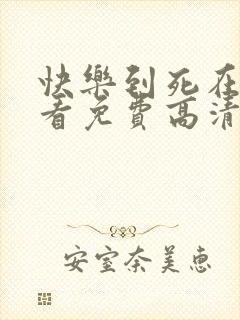 快樂到死在
看免費高清
安室奈美惠